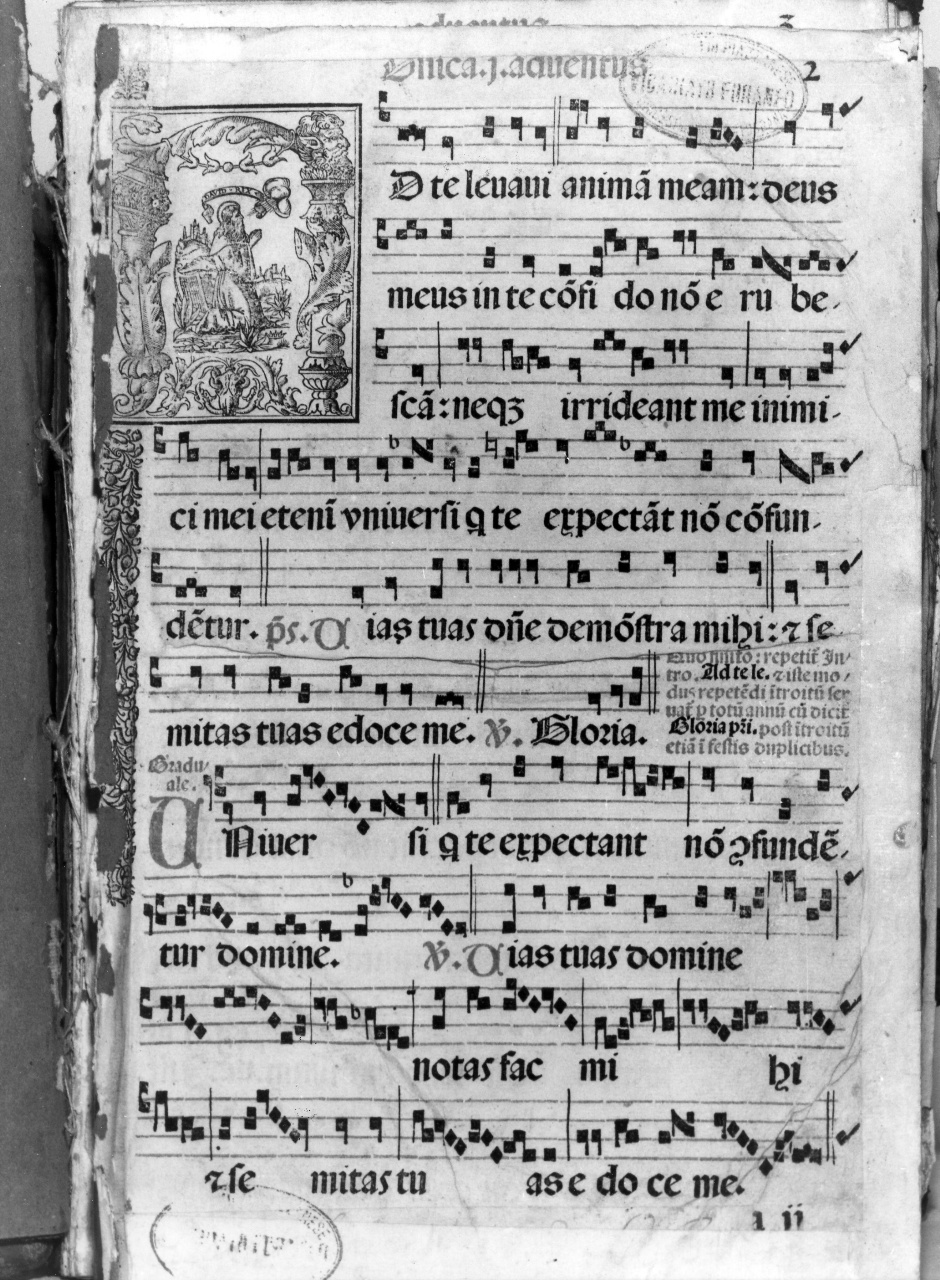 Dñica.j.aduentus
2
DAVID REX
D te leuaui animā meam: deus
meus in te cōfi do nō e ru be-
scā: neqȝ irrideant me inimi-
ci mei etenī vniuersi q te expectāt nō cōfun-
dētur. p̄s. U ias tuas dñe demōstra mihi: ⁊ se-
mitas tuas edoce me. ℣. Gloria.
repetit̄ In-
tro. Ad te le. ⁊ iste mo-
dus repetēdi ītroitū ser
uat̄ p totū annū cū dicit̄
Glōria pr̄i. post ītroitū
etiā ī festis duplicibus.
Gradu-
ale.
U Niuer si q te expectant nō ꝯfundē-
tur domine. ℣. U ias tuas domine
notas fac mi hi
⁊ se mitas tu as e do ce me.